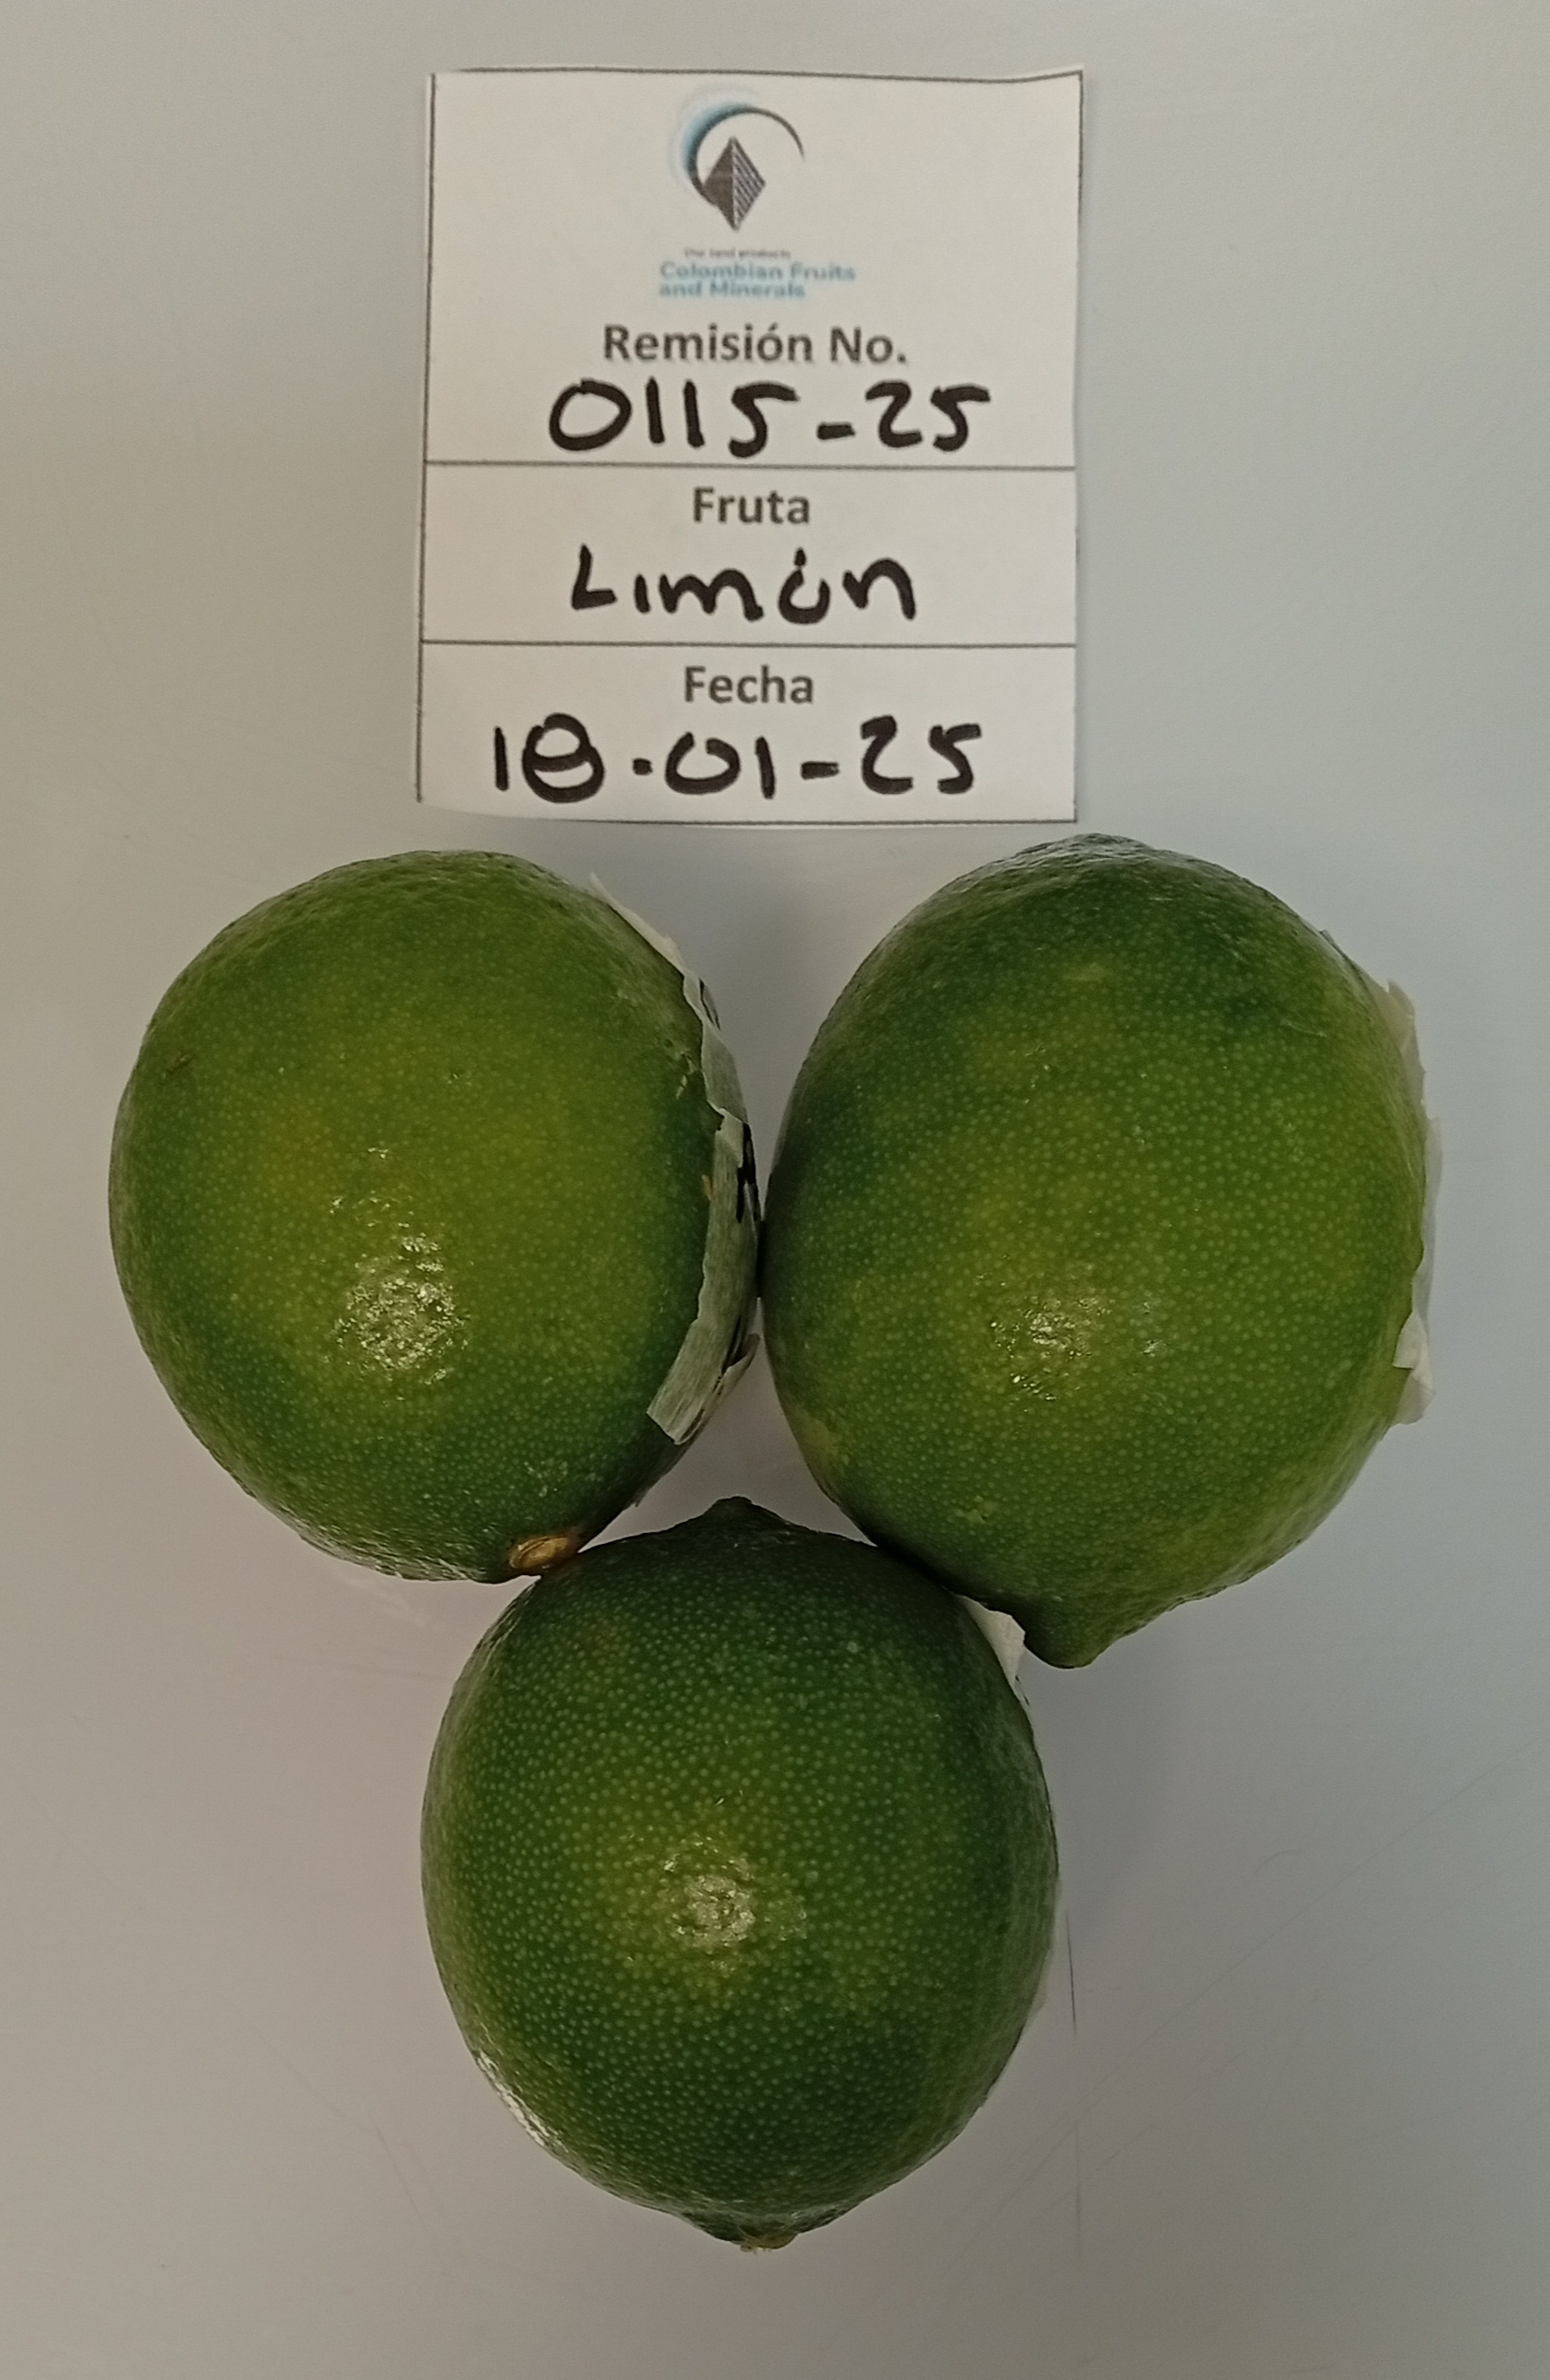 Our land products
Colombian Fruits
and Minerals
Remisión No.
0115-25
Fruta
Limón
Fecha
18-01-25